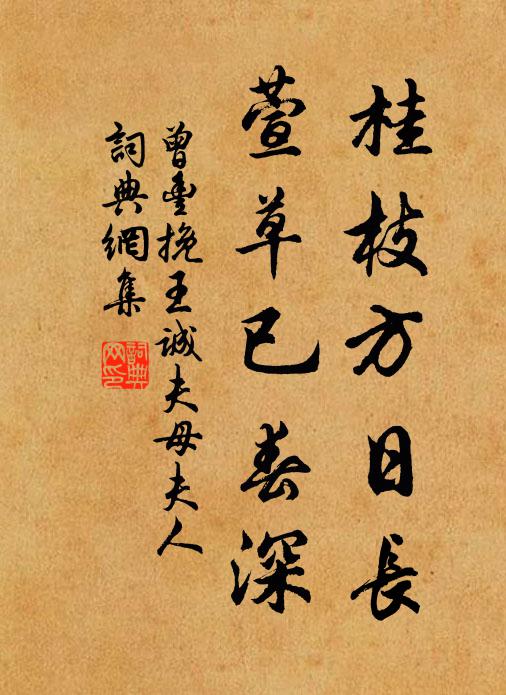 桂枝方日長
萱草已春深
曾豊挽王誠夫母夫人
詞典網集
詞典網印